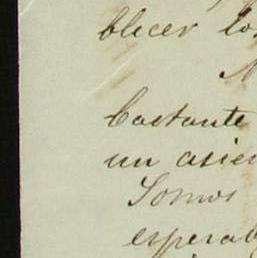 blecer los
Bastante
un asien
Somos
esperab